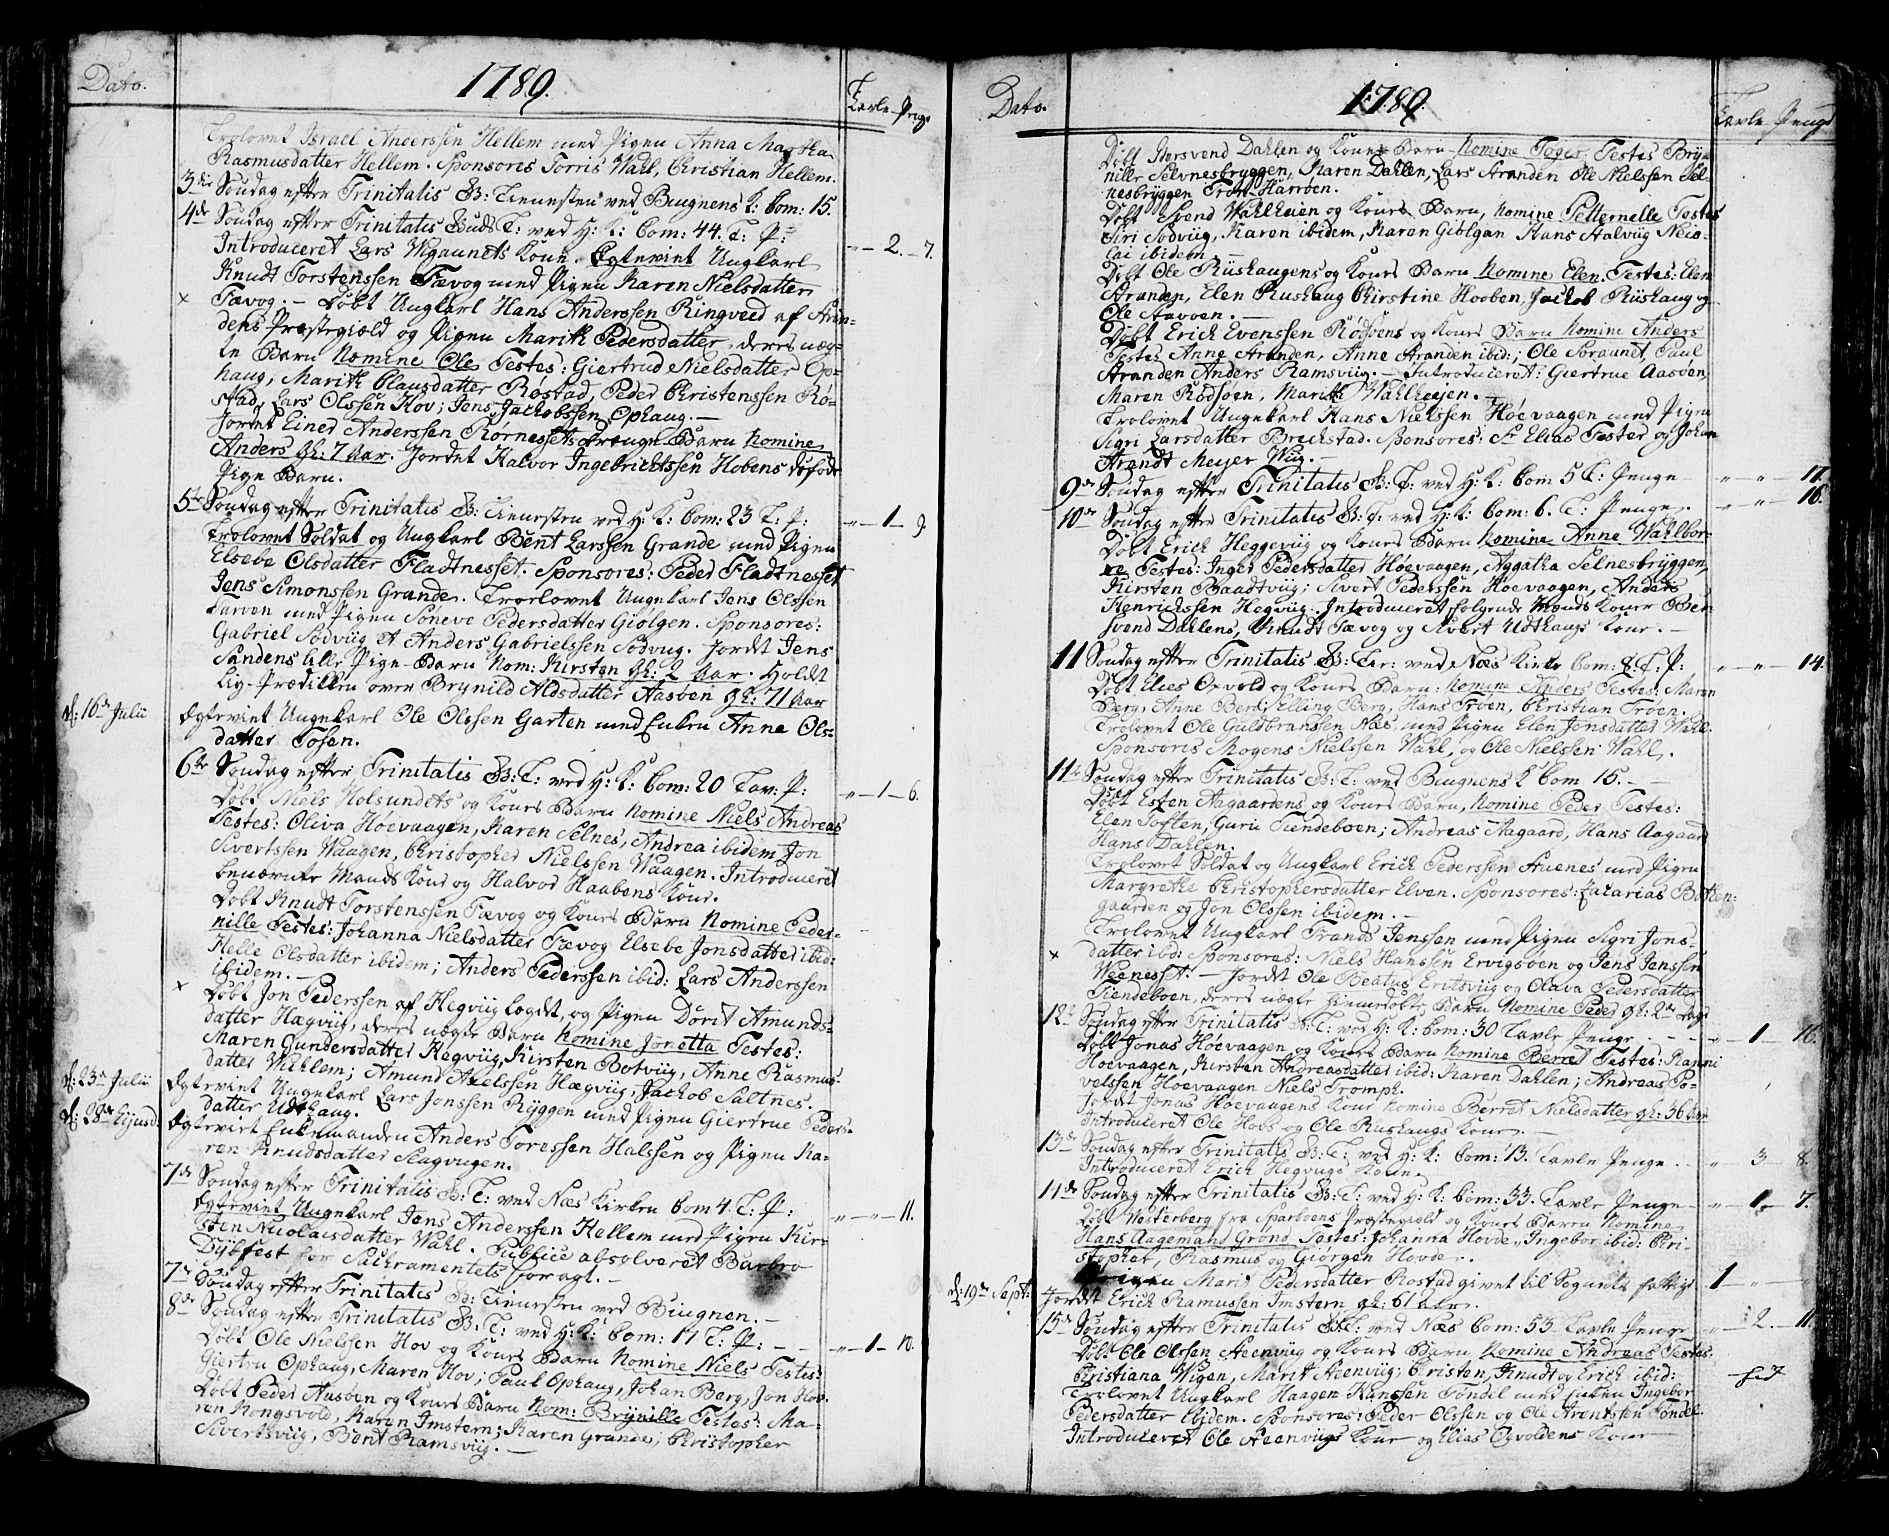 Dato.
1789.
Tavle Peng.
Trolovet Israel Anderssen Hellem med Pigen Anna Martha
Rasmusdatter Hellem. Sponsores Torris Wahl, Christian Hellem.
3die Søndag efter Trinitatis G: Tienesten ved Bugnens K: Com: 15.
4de Søndag efter Trinitatis Guds T: ved H: K: Com: 44. T: P: " - 2. - 7.
Introduceret Lars Mgaunets Kone. Egteviet Ungkarl
Knudt Torstenssen Tævog med Pigen Karen Nielsdatter
x Tævog. - Døbt Ungkarl Hans Anderssen Ringveed af
dens Præstegiæld og Pigen Marith Pedersdatter, deres uæg-
te Barn Nomine Ole Testes: Giertrud Nielsdatter Op-
haug, Marith Clausdatter Røstad, Peder Christenssen Rø-
stad, Lars Olssen Hov; Jens Jachobssen Ophaug. -
Jordet Einer Anderssen Rørnessets Drenge Barn Nomine
Anders gl: 7 Aar. Jordet Halvor Ingebrichtssen Hobens dødfødt
Pige Barn.
5te Søndag efter Trinitatis G: Tienesten ved H: K: Com: 23 T: P: " - 1 - 9.
Trolovet Soldat og Ungkarl Bent Larssen Grande med Pigen
Elsebe Olsdatter Fladtnesset. Sponsores: Peder Fladtnesset
Jens Simonssen Grande. Trolovet Ungekarl Jens Olssen
Larven med Pigen Søneve Pedersdatter Giølgen. Sponsores:
Gabriel Sodviig et Anders Gabrielssen Sodvug. Jordt Jens
Sandens lille Pige-Barn Nom: Kirsten gl: 2 Aar. Holdt
Lig-Prædiken over Brynild Aldsdatter Aasøen gl: 71 Aar
d: 16de Julii Egteviet Ungekarl Ole Olssen Garten med Enken Anne Ols-
datter Tosen.
6te Søndag efter Trinitatis G: T: ved H: K: Com: 20 Tav: P: " - 1 - 6.
Døbt Niels Holsundets og Kones Barn Nomine Niels Andreas
Testes: Oliva Høevaagen, Karen Selnes, Andrea ibidem Jon
Sivertssen Waagen, Christopher Nielssen Waagen. Introduceret
benævnte Mands Kone og Halvor Haabens Kone.
Døbt Knudt Torstenssen Tævog og Kones Barn Nomine Peder-
nille Testes: Johanna Nielsdatter Tævog Elsebe Jonsdatter ibid:
Helle Olsdatter ibidem; Anders Pederssen ibid: Lars Anderssen
ibidem. -
x Døbt Jon Pederssen af Hegviig Lægdet, og Pigen Dorit Amunds-
datter Hægviig, deres uægte Barn Nomine Jonetta Testes:
Maren Gundersdatter Hegviig, Kirsten Botviig, Anne Rasmus-
datter Wahlem; Amund Axelssen Hægviig, Jachob Saltnes.
d: 23de Julii Egteviet Ungekarl Lars Jonssen Ryggen med Pigen Giertrue Peders-
datter Udthaug.
d: 28de Ejusd: Egteviet Enkemanden Anders Toressen Halssen og Pigen Ka-
ren Knudsdatter Slagvugen.
7de Søndag efter Trinitatis G: T: ved Næs Kirken Com 4. T: P: " - " - 11.
Egteviet Ungekarl Jens Anderssen Hellem med Pigen Kir-
sten Nicolaisdatter Wahl. Publice absolveret Barbro
Dybfest for Sachramentets Foragt. -
7de Søndag efter Trinitatis G: Tienesten ved Biugnen. -
8de Søndag efter Trinitatis G: T: ved H: K: Com: 17 T: P: - - " - 1 - 10.
Døbt Ole Nielssen Hov og Kones Barn Nomine Niels Testes:
Giertru Ophaug, Maren Hov; Paul Ophaug, Johan Berg, Jon Hov.
Døbt Peder Aasøen og Kones Barn Nom: Brynille Testes: Ma-
ren Kongsvold, Karen Imstern; Karen Grande; Christopher
Sivertsviig, Bent Ramsviig. -
Dato.
1789
Tavle Penge
Døbt Borsvend Dahlen og Kones Barn Nomine Toger, Testes Bry-
nille Selvnesbryggen, Karen Dahlen, Lars Aranden Ole Nielssen Sel-
nesbryggen Tron Harrøen.
Døbt Svend Wahlheien og Kones Barn, Nomine Petternelle Testes
Siri Sodviig, Karen ibidem, Karen Giølgan Hans Halviig Nico-
lai ibidem.
Døbt Ole Riishaugens og Kones Barn Nomine Elen. Testes: Elen
Aranden, Elen Rushaug Kirstine Hooben, Jachob Riishaug og
Ole Aavoen. -
Døbt Erich Evenssen Rødsøens og Kones Barn Nomine Anders
Testes Anne Aranden, Anne Aranden ibid:; Ole Soraunet, Paul
Aranden Anders Ramsviig. - Introduceret: Giertrue Aasøen,
Maren Rødsøen, Marith Wahlheien.
Trolovet Ungekarl Hans Nielssen Høevaagen med Pigen
Sigri Larsdatter Brechstad. Sponsores: Sr Elias Tester og Johan
Arandt Meyer Wug. -
9de Søndag efter Trinitatis G: T: ved H: K: Com 5 T: Penge - " - " - 11.
10de Søndag efter Trinitatis G: T: ved H: K: Com: 6. T: Penge. " - " - 16.
Døbt Erich Heggeviig og Kones Barn Nomine Anne Wahlbor-
re Testes: Inger Pedersdatter Høevaagen, Aggatha Selnesbryggen,
Kirsten Baadtviig; Sivert Pederssen Høevaagen, Anders
Henrichssen Hegviig. Introduceret følgende Mands Koner Ber-
svend Dahlens, Knudt Tævog og Sivert Udthaugs Kone. -
11 Søndag efter Trinitatis G: Ter: ved Næs Kirke Com: 8 T: P: " - " - 14.
Døbt Elies Opvold og Kones Barn: Nomine Anders Testes: Maren
Berg, Anne Berg; Elling Berg, Hans Troen, Christian Troen.
Trolovet Ole Guldbranssen Næs, med Pigen Elen Jonsdatter Wahl.
Sponsoris Mogens Nielssen Wahl, og Ole Nielsen Wahl.
11te Søndag efter Trinitatis G: T: ved Bugnens K Com 15. - -
Døbt Esten Aagaardens og Kones Barn, Nomine Peder Testes:
Elen Toften, Guru Tiendeboen; Andreas Aagaard, Hans Aagaard
Hans Dahlen.
Trolovet Soldat og Ungkarl Erich Pederssen Auenes med Pigen
Margrethe Christophersdatter Elven. Sponsores: Zacharias Botten-
gaarden og Jon Olssen ibidem. -
Trolovet Ungkarl Frands Jenssen med Pigen Sigri Jons-
x datter ibid: Sponsores: Niels Hanssen Ervigsøen og Jens Jenssen
Weenesset. - Jordt Ole Beatus Eritsviig og Olava Pedersdatter
Tiendeboen, deres uægte hiemedøbte Barn Nomine Peder gl: 2de Dage
12te Søndag efter Trinitatis G: T: ved H: K: Com: 30 Tavle Penge - - - " - 1 - 16.
Døbt Jonas Høevaagen og Kones Barn Nomine Berret Testes: Ranni
Hoevaagen, Kirsten Andreasdatter ibid: Karen Dahlen; Andreas Po-
velssen Hoevaagen Niels Tromph.
Jordt Jonas Hoevaagens Kone Nomine Berret Nielsdatter gl: 36 Aar
Introduceret Ole Hobs og Ole Rushaugs Koner. -
13de Søndag efter Trinitatis G: T: ved H: K: Com: 13. Tavle Penge. - " - 3 - 8.
Introduceret Erich Hegvugs Kone.
14de Søndag efter Trinitatis G: T: ved H: K: Com: 33. Tavle Penge - - " - 1. - 7.
Døbt Westerberg fra Sparboens Præstegiæld og Kones Barn Nomine
Hans Aagemand Grønd Testes: Johanna Hovde, Ingebor ibid: Chri-
stopher, Rasmus og Giørgen Hovde. -
Pigen Marit Pedersdatter Rostad givet til Sognets fattige 1 " - "
d: 19de Sept: Jordt Erich Ramussen Imstern gl: 61 Aar.
15de Søndag efter Trinitatis G: T: ved Næs Com: 53. Tavle Penge - " - 2. - 11.
Døbt Ole Olssen Aeenviig og Kones Barn Nomine Andreas Testes:
Christiana Wigen, Marit Aeenviig; Cristen, Knudt og Erich ibid:
Trolovet Ungkarl Haagen Kinssen Fondel med Enken Ingebor
Pedersdatter Ibidem. Sponsores: Peder Olssen og Ole Arentssen Fondel.
Introduceret Ole Aeenviigs Kone og Elias Opvoldens Kone